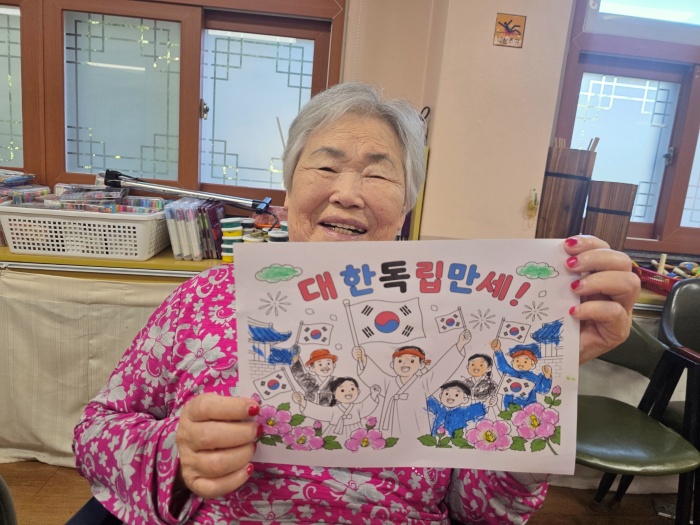 대한독립만세!